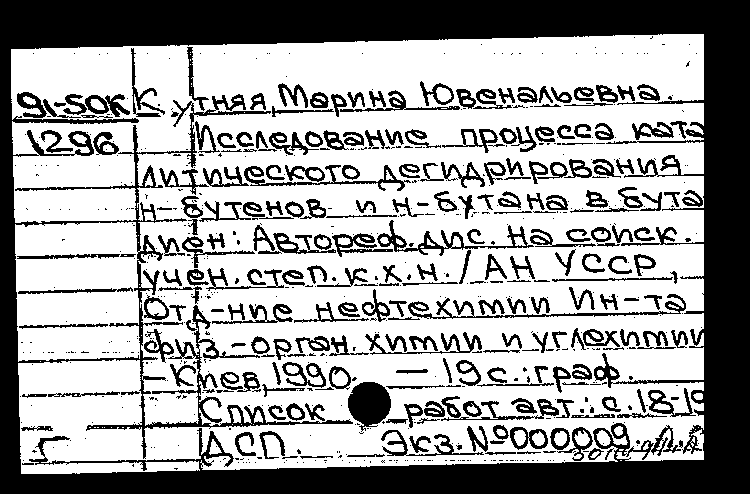 91-50К Кутняя, Марина Ювенальевна.
1296 Исследование процесса ката
литического дегидрирования
н-бутенов и н-бутана в бута
диен: Автореф. дис. на соиск.
учен. степ. к.х.н. / АН УССР,
Отд-ние нефтехимии Ин-та
физ.-орган. химии и углехимии
— Киев, 1990. — 19 с.: граф.
Список работ авт.: с. 18-19
ДСП. Экз. №000009.